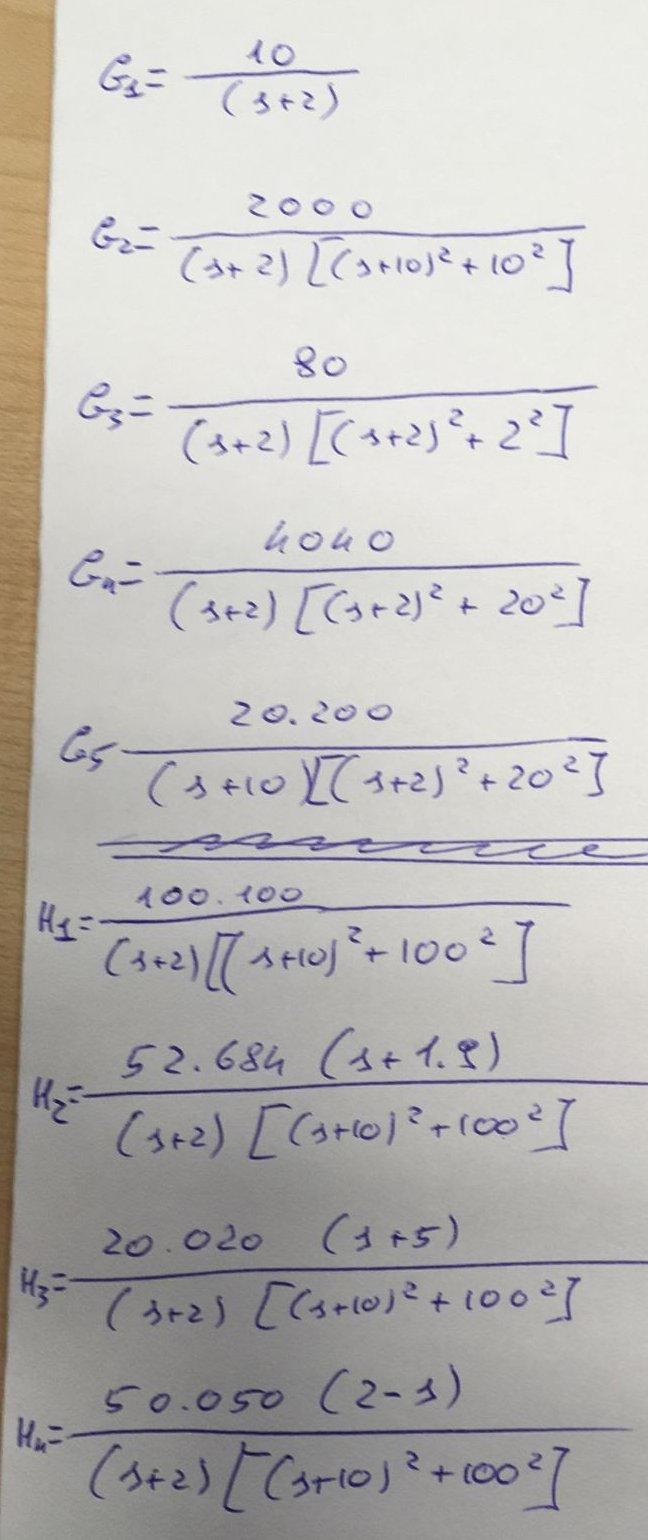 G₁ = 10 / (s+2)
G₂ = 2000 / (s+2) [(s+10)² + 10²]
G₃ = 80 / (s+2) [(s+2)² + 2²]
G₄ = 4040 / (s+2) [(s+2)² + 20²]
G₅ 20.200 / (s+10) [(s+2)² + 20²]
H₁ = 100.100 / (s+2) [(s+10)² + 100²]
H₂ = 52.684 (s+1.9) / (s+2) [(s+10)² + 100²]
H₃ = 20.020 (s+5) / (s+2) [(s+10)² + 100²]
H₄ = 50.050 (2-s) / (s+2) [(s+10)² + 100²]